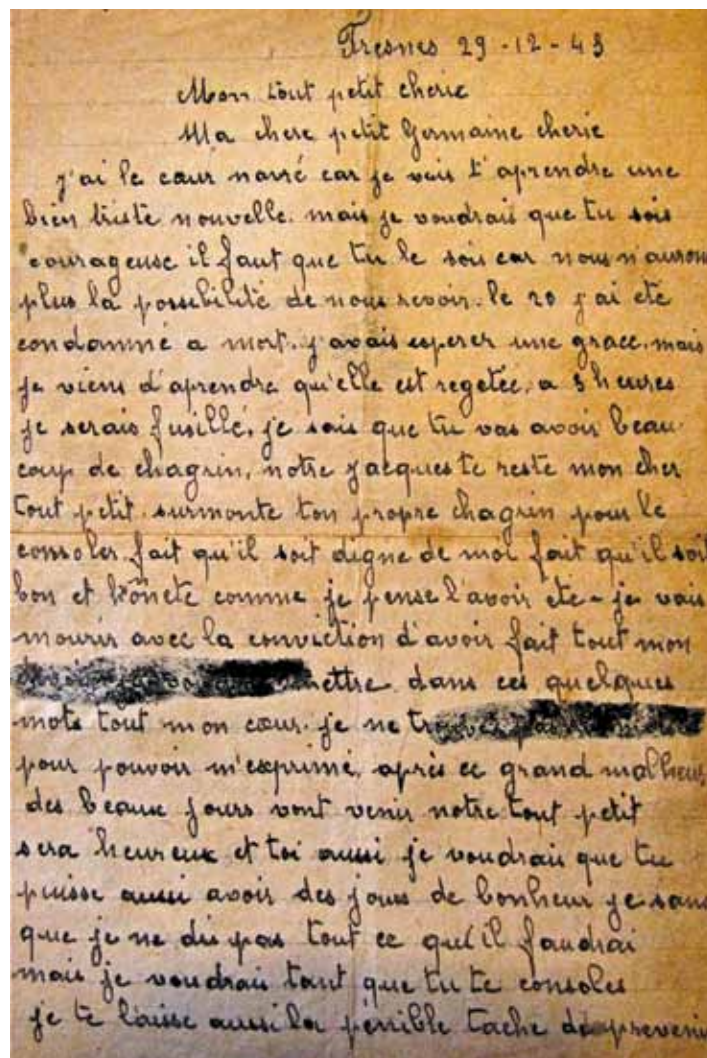 Fresnes 29-12-43
Mon tout petit cherie
Ma chere petit Germaine cherie
j'ai le cœur navré car je vais t'aprendre une
bien triste nouvelle. mais je voudrais que tu sois
courageuse il faut que tu le sois car nous n'aurons
plus la possibilité de nous revoir. le 20 j'ai eté
condamné a mort. j'avais esperer une grace. mais
je viens d'aprendre qu'elle est regetée. a 3 heures
je serais fusillé. je sais que tu vas avoir beau-
coup de chagrin. notre Jacques te reste mon cher
tout petit. surmonte ton propre chagrin pour le
consoler. fait qu'il soit digne de moi fait qu'il soit
bon et hônete comme je pense l'avoir ete - je vais
mourir avec la conviction d'avoir fait tout mon
mettre dans ces quelques
mots tout mon cœur. je ne
pour pouvoir m'exprimé. après ce grand malheur
des beaux jours vont venir notre tout petit
sera heureux et toi aussi je voudrais que tu
puisse aussi avoir des jours de bonheur je sans
que je ne dis pas tout ce qu'il faudrai
mais je voudrais tant que tu te consoles
je te laisse aussi la pénible tache de prevenir